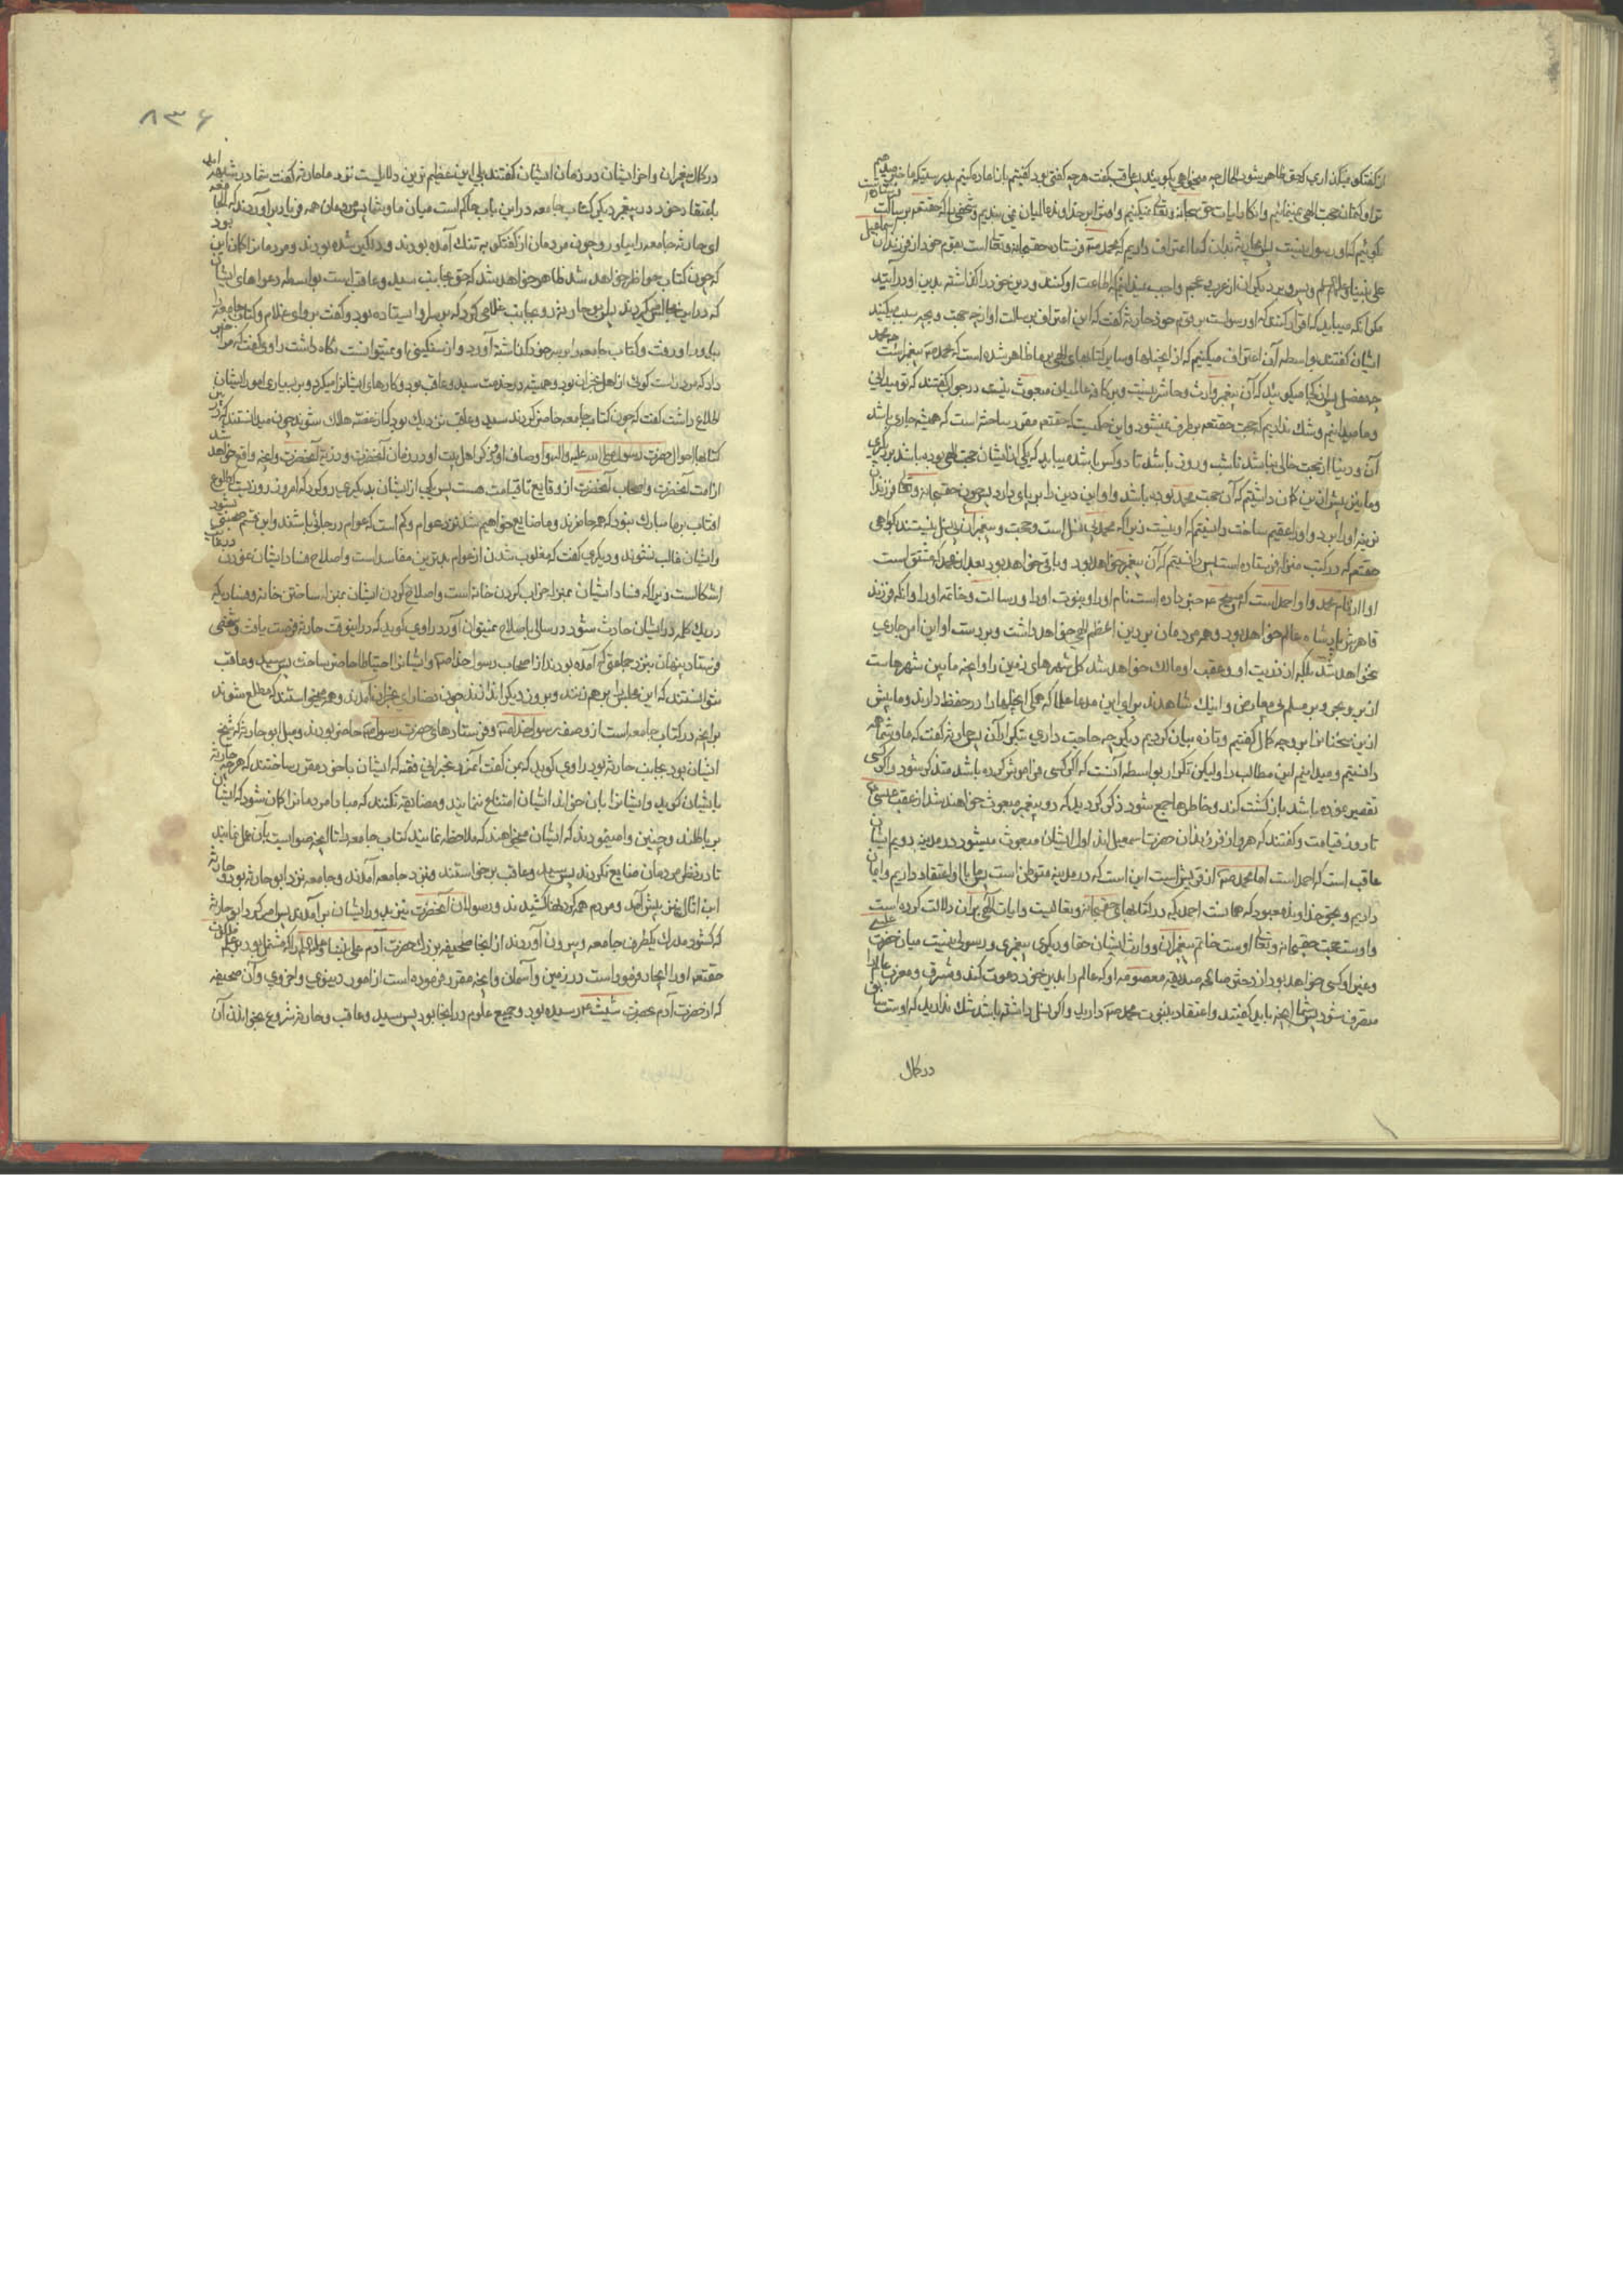 از گفتگو میکذاری که حق ظاهر شود الحال چه میخواهی بکویند پس عاقب گفت هرچه گفتنی بود گفتیم باز اعاده کنیم بدرستیکه ما
تو او کتمان حجت الهی نمینمائیم و انکار ایات حق سبحانه و تعالی نمیکنیم و افترا بر خداوند عالمیان نمی بندیم و شخصی را که حقتعم برسالت
نکوئیم که او رسول نیست پس بدان که ما اعتراف داریم که محمد صم فرستاده حقسبحانه و تعالی است بقوم خود از فرزندان اسمعیل
علی نبینا و علیهم السلم و بر دیکران از عرب و عجم واجب نمیدانیم که اطاعت او کنند و دین خود را گذاشته بدین او در آیند
مکر آنکه میباید که اقرار کنند که او رسولست بر قوم خود حارثه گفت که این اعتراف برسالت او از چه جهت و بچه سبب میکنید
ایشان گفتند بواسطه آن اعتراف میکنیم که از انجیلها و سایر کتابهای الهی بر ما ظاهر شده است که محمد صم پیغمبر است
چه فضل پس از کجا میکوئید که آن پیغمبر وارث و حاشر نیست و بر کافه عالمیان مبعوث نیست در جواب گفتند که تو میدانی
و ما میدانیم و شک نداریم که حجت حقتعم برطرف نمیشود و این حکمیست که حقتعم مقرر ساخته است که همیشه جاری باشد
آن و دنیا از حجت خالی نباشد تا شب و روز باشد تا دو کس باشد میباید که یکی از ایشان حجت الهی بوده باشد بر دیکری
و ما نیز پیش ازین گمان داشتیم که آن حجت محمد بوده باشد و او این دین را بر پای دارد پس چون حقسبحانه و تعالی فرزندان
نرینه او را برد و او را عقیم ساخت دانستیم که او نیست زیرا که محمد بی نسل است و حجت و پیغمبر آخر بی نسل نیستند بکواهی
حقتعم که در کتب منزله فرستاده است پس دانستیم که آن پیغمبر خواهد بود و باقی خواهد بود بعد از محمد که مشتق است
نام او از نام محمد و او احمد است که مسیح عم خبر داده است نام او را و نبوت او را و رسالت و خاتمه او را و آنکه فرزند
قاهرش پادشاه عالم خواهد بود و همه مردمان بر دین اعظم الهی خواهد داشت و بدست او این امر جاری
نخواهد شد بلکه از ذریت او و عقب او مالک خواهد شد کل شهرهای زمین را و آنچه مابین شهرهاست
از بر و بحر و بر مسلم بی معارض و اینک شاهدند برای این مدعا علما که همکی انجیلها را در حفظ دارند و ما پیش
ازین سخنان را بر وجه کمال گفتیم و تازه بیان کردیم دیکر چه حاجت داری بتکرار آن پس حارثه گفت که ما و شما همه
دانستیم و میدانیم این مطالب را ولیکن تکرار بواسطه آنست که اگر کسی فراموش کرده باشد متذکر شود و اگر کسی
تقصیر نموده باشد بازگشت کند و خاطرها جمع شود ذکر کردید که دو پیغمبر مبعوث خواهند شد از عقب عیسی
تا روز قیامت و گفتند که هر دو از فرزندان حضرت اسمعیل اند اول ایشان مبعوث میشود در مدینه و دویم ایشان
عاقب است که احمد است اما محمد صم از قریش است این است که در مدینه متوطن است پس ما باو اعتقاد داریم و ایمان
داریم و بحق خداوند معبود که هما نست احمد که در کتابهای حقسبحانه و تعالیست و ایات الهی بر آن دلالت کرده است
و اوست حجت حقسبحانه و تعالی و اوست خاتم پیغمبران و وارث ایشان حقا و دیکری پیغمبری و رسولی نیست میان حضرت عیسی
و غیر او کسی خواهد بود از دختر صالحه صدیقه معصومه او که عالم را بدین خود دعوت کند و مشرق و مغرب عالم را
متصرف شود پس شما آنچه باید گفتند و اعتقاد بنبوت محمد صم دارید و اگر نسل داشته باشد شک ندارید که اوست سابق
در کمال
۸۳۶
در کمال پیغمبران و آخر ایشان در زمان ایشان گفتند بلی این عظیم ترین دلایلست نزد ما حارثه گفت شما در شبهه اید
باعتقاد خود در پیغمبر دیکر کتاب جامعه در این باب حاکم است میان ما و شما پس مردمان همه فریاد برآوردند که
ای حارثه جامعه را بیاور و چون مردمان از گفتگو به تنک آمده بودند و دلگیر شده بودند و مردمان را گمان این بود
که چون کتاب حاضر خواهد شد ظاهر خواهد شد که حق بجانب سید و عاقب است بواسطه دعواهای ایشان
که در این مجالس کردند پس ابو حارثه رو بجانب غلامی کرد که بر سر او ایستاده بود و گفت برو ای غلام و کتاب جامعه را
بیاور او رفت و کتاب جامعه را بر سر خود گذاشته آورد و از سنگینی او نمیتوانست نگاه داشت راوی گفت که مرا خبر
داد که مرد راست گوی از اهل نجران بود و همیشه در خدمت سید و عاقب بود و کارهای ایشانرا میکرد و بر بسیاری امور ایشان
اطلاع داشت گفت که چون کتاب جامعه حاضر کردند سید و عاقب نزدیک بود که از غصه هلاک شوند چون میدانستند که در
کتابها احوال حضرت رسول صلی الله علیه و اله و اوصاف او و ذکر اهل بیت او در زمان آنحضرت و ذریه آنحضرت و آنچه واقع خواهد شد
از امت آنحضرت و اصحاب آنحضرت از وقایع تا قیامت هست پس یکی از ایشان بدیکری رو کرد که امروز روزیست که طلوع
افتاب بر ما مبارک نبود که همه حاضرند و ما ضایع خواهیم شد نزد عوام و کم است که عوام در جائی باشند و این قسم
و ایشان غالب نشوند و دیکری گفت که مغلوب شدن از عوام بدترین مفاسد است و اصلاح فساد ایشان نمودن
اشکالست زیرا که فساد ایشان بمنزله خراب کردن خانه است و اصلاح کردن ایشان بمنزله ساختن خانه و فسادی که
در یک کلمه در ایشان حادث شود در سالی باصلاح نمیتوان آورد راوی گوید که در اینوقت حارثه فرصت یافت و شخصی
فرستاد پنهان بنزد جماعتی که آمده بودند از اصحاب رسول خدا صم و ایشانرا احتیاطا حاضر ساخت پس سید و عاقب
نتوانستند که این مجلس را بر هم زنند و بروز دیکر اندازند چون نصارای نجران آمدند و همه میخواستند که مطلع شوند
بر آنچه در کتاب جامعه است از وصف رسول خدا صم و فرستادهای حضرت رسول صم حاضر بودند و میل ابو حارثه که شیخ
ایشان بود بجانب حارثه بود راوی گوید که بمن گفت آن مرد نجرانی ثقه که ایشان با خود مقرر ساختند که هر چه حارثه
بایشان گوید و ایشانرا بآن خواند ایشان امتناع ننمایند و مضایقه نکنند که مبادا مردمانرا گمان شود که ایشان
بر باطلند و چنین وا مینمودند که ایشان میخواهند که ملاحظه نمایند کتاب جامعه را تا آنچه صوابست بآن عمل نمایند
تا در نظر مردمان ضایع نکردند پس سید و عاقب برخواستند و بنزد جامعه آمدند و جامعه نزد ابو حارثه بود و حارثه
ابن اثال نیز پیش آمد و مردم همه گردنها کشیدند و رسولان آنحضرت نیز بدور ایشان برآمدند پس امر کرد ابو حارثه
که گشودند یکطرف جامعه و بیرون آوردند از آنجا صحیفه بزرک حضرت آدم علی نبینا و علیه السلم را که مشتمل بود بر علم ملکوت
حقتعم او را ایجاد فرموده است در زمین و آسمان و آنچه مقرر فرموده است از امور دنیوی و اخروی و آن صحیفه
که از حضرت آدم بحضرت شیث عم رسیده بود و جمیع علوم در آنجا بود پس سید و عاقب و حارثه شروع بخواندن آن